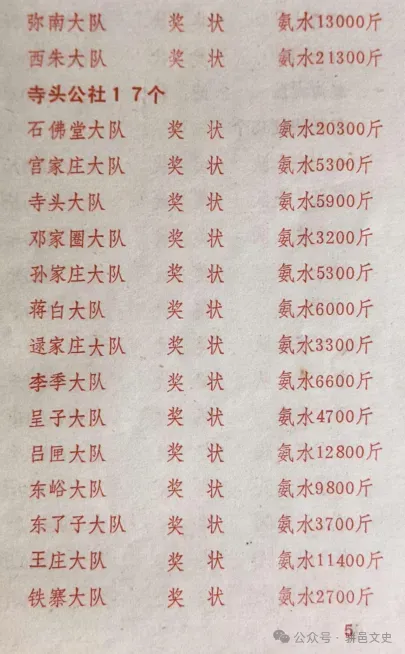 弥南大队 奖 状 氨水13000斤
西朱大队 奖 状 氨水21300斤
寺头公社17个
石佛堂大队 奖 状 氨水20300斤
宫家庄大队 奖 状 氨水5300斤
寺头大队 奖 状 氨水5900斤
邓家圈大队 奖 状 氨水3200斤
孙家庄大队 奖 状 氨水5300斤
蒋白大队 奖 状 氨水6000斤
逯家庄大队 奖 状 氨水3300斤
李季大队 奖 状 氨水6600斤
呈子大队 奖 状 氨水4700斤
吕匣大队 奖 状 氨水12800斤
东峪大队 奖 状 氨水9800斤
东了子大队 奖 状 氨水3700斤
王庄大队 奖 状 氨水11400斤
铁寨大队 奖 状 氨水2700斤
5
公众号·骈邑文史